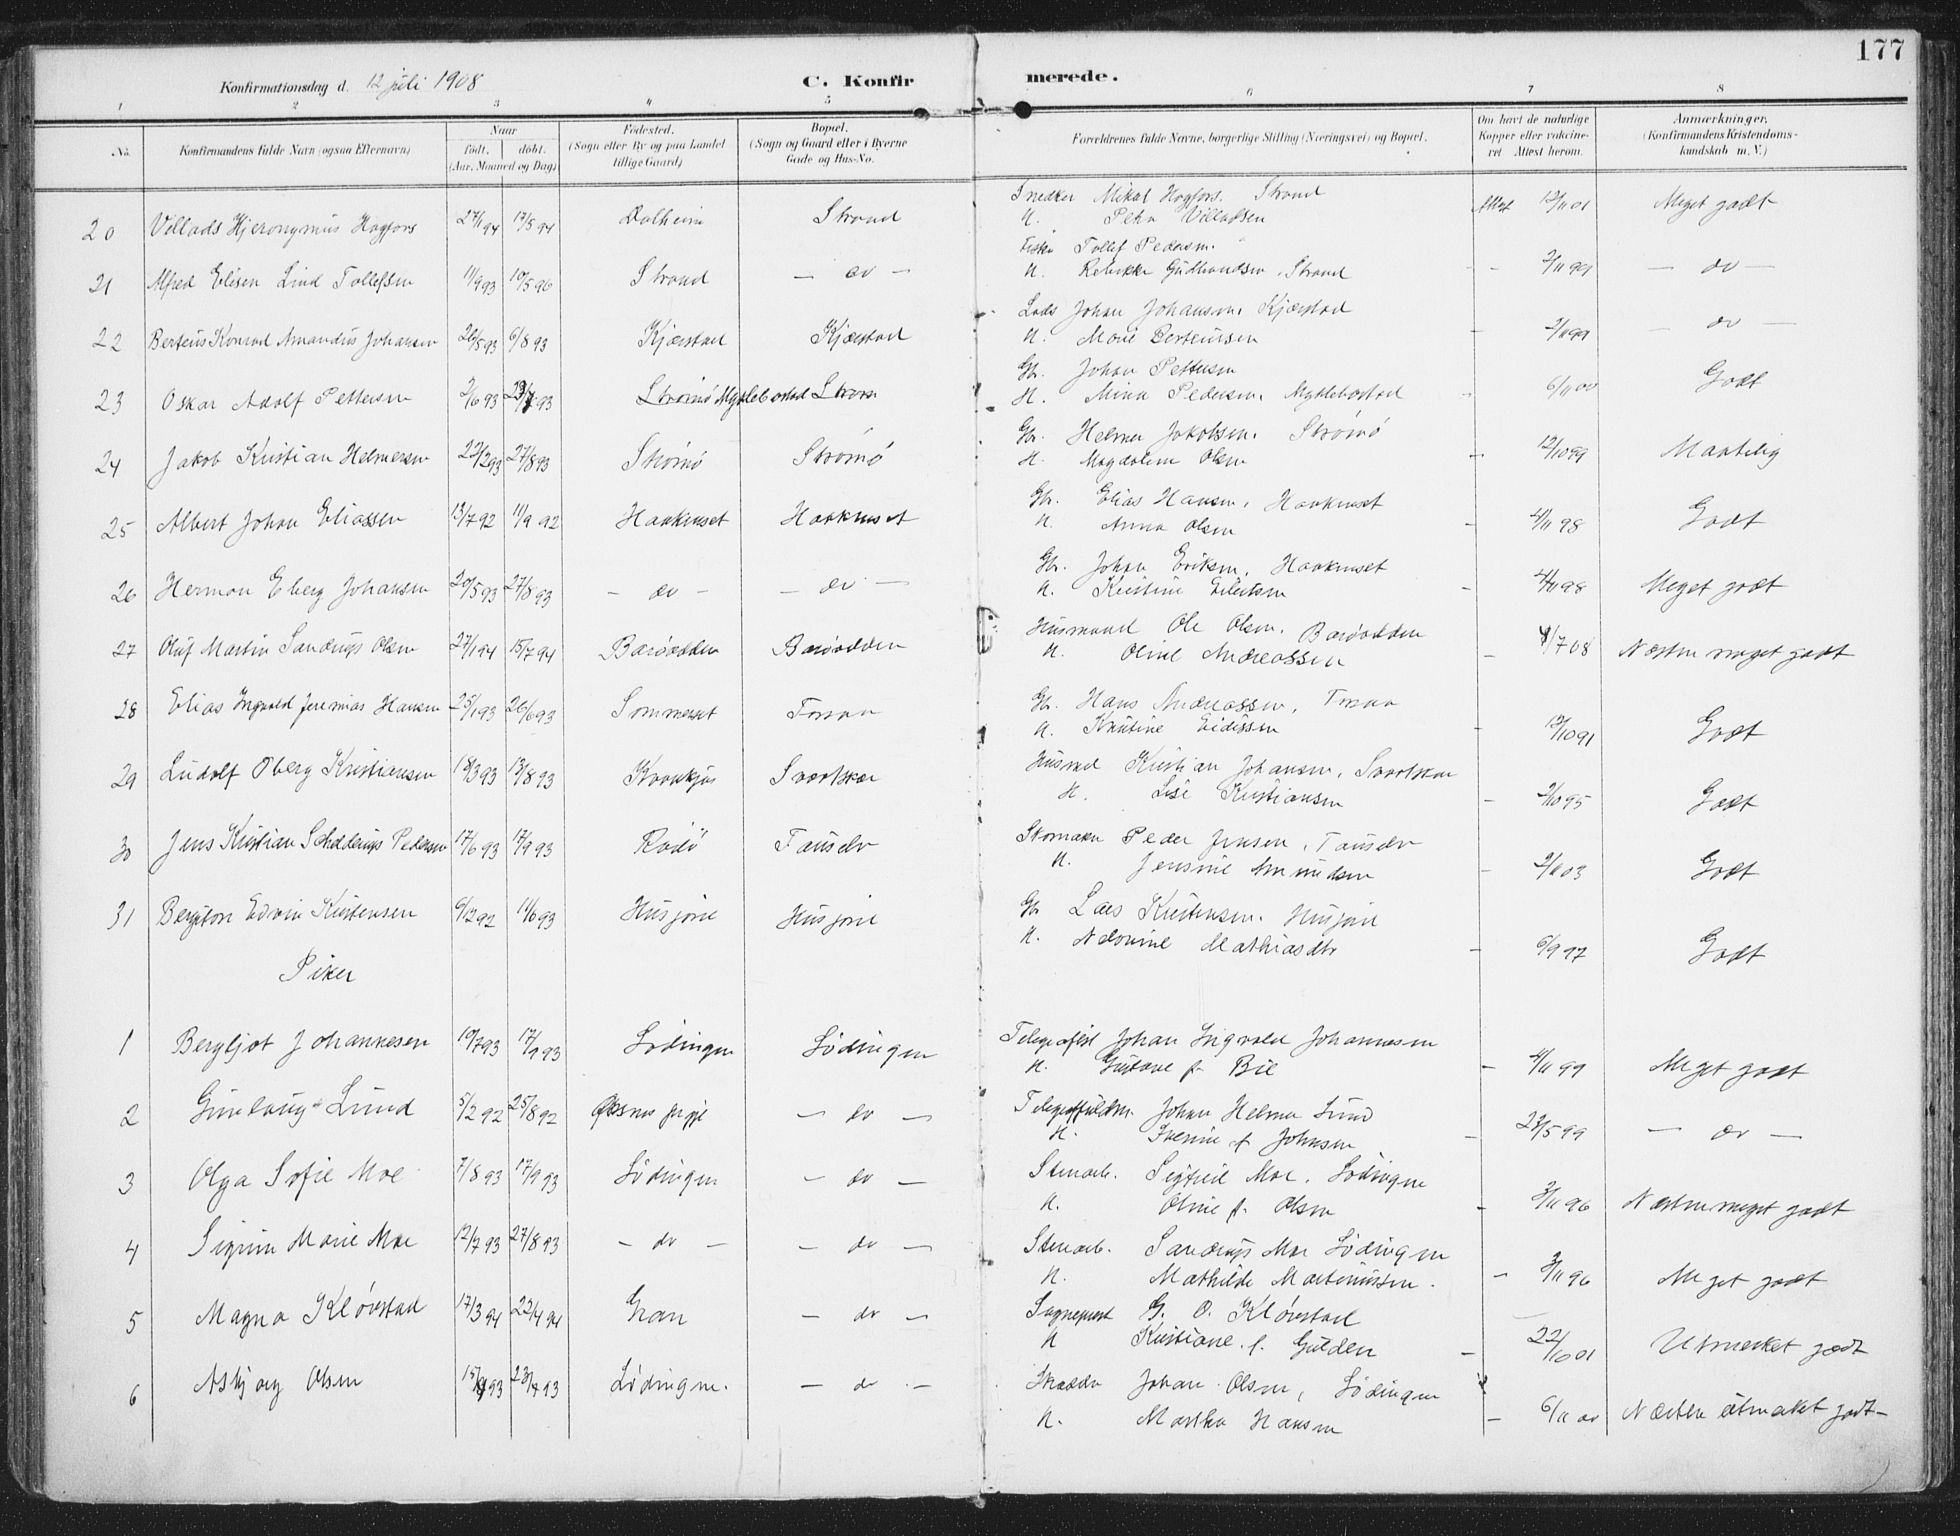 177
Konfirmationsdag d. 12 juli 1908
C. Konfirmerede.
1 2 3 4 5 6 7 8
No. Konfirmandens fulde Navn (ogsaa Efternavn) Naar født, døbt. (Aar, Maaned og Dag) Fødested. (Sogn eller By og paa Landet tillige Gaard) Bopæl. (Sogn og Gaard eller i Byerne Gade og Hus-No. Forældrenes fulde Navne, borgerlige Stilling (Næringsvei) og Bopæl. Om havt de naturlige Kopper eller vaccineret Attest herom. Anmærkninger. (Konfirmandens Kristendomskundskab m. V.)
20 Villads Hjeronymus Hogfors 27/1 94 17/5 94 Dalheim Strand Snedker Mikal Hogfors. Strand Attest 12/11 01 Meget godt
H. Petra Villadsen
21 Alfred Elisen Lind Tollefsen 11/9 93 10/5 96 Strand — do — Fisker Tollef Pedersen. - - 2/11 99 — do —
H. Rebekka Gudbrandsen, Strand
22 Berteus Konrad Amandus Johansen 26/5 93 6/8 93 Kjærstad Kjærstad Lods Johan Johansen, Kjærstad - 2/11 99 — do —
H. Marie Berteussen
23 Oskar Adolf Pettersen 2/6 93 23/7 93 Strømø Myklebostad Gbr. Johan Pettersen 6/11 00 Godt
H. Mina Pedersen, Myklebostad
24 Jakob Kristian Helmersen 22/2 93 27/8 93 Strømø Strømø Gbr. Helmer Jakobsen. Strømø - 12/10 99 Maatelig
H. Magdalene Olsen
25 Albert Johan Eliassen 13/7 92 11/9 92 Haakenset Haakenset Gbr. Elias Hansen, Haakenset - 4/11 98 Godt
H. Anna Olsen
26 Herman Eberg Johansen 20/5 93 27/8 93 — do — — do — Gbr. Johan Eriksen, Haakenset - 4/11 98 Meget godt
H. Kristine Eilertsen
27 Oluf Martin Sandrup Olsen 27/1 94 15/7 94 Barøodden Barøodden Husmand Ole Olsen. Barøodden - 8/7 08 Næsten meget godt
H. Oline Andreassen
28 Elias Ingvald Jeremias Hansen 25/1 93 26/6 93 Sommerset Forsaa Gbr. Hans Andreassen, Forsaa - 12/10 91 Godt
H. Knutine Eidissen
29 Ludolf Oberg Kristiansen 18/3 93 13/8 93 Svartskar Kristian Johansen, Svartskar - 2/10 95 Godt
H. Lise Kristiansen
30 Jens Kristian Schelderup Pedersen 17/6 93 17/9 93 Rødø Skomaker Peder Jensen, - 2/11 03 Godt
H. Jensine Amundsen
31 Edvin Kristensen 6/12 92 11/6 93 Husjorie Husjorie Gbr Laes Kristensen. Husjorie - 6/9 97 Godt
H. Mathiasdtr
Piker
1 Bergljot Johannesen 10/7 93 17/9 93 Lødingen Lødingen Telegrafist Johan Ingvald Johannesen - 4/11 99 Meget godt
H. Gustava f. Bie
2 Gunlaug Lund 5/2 92 25/8 92 Øksnes — do — Johan Helmer Lund - 22/5 99 — do —
H. f Johnsen
3 Olga Sofie Moe 7/8 93 17/9 93 Lødingen — do — Stenarb. Sigfred Moe. Lødingen - 3/11 96 Næsten meget godt
H. Oline f. Olsen
4 Sigrun Marie Moe 12/7 93 27/8 93 — do — — do — Stenarb. Sandrup Moe Lødingen - 3/11 96 Meget godt
H. Mathilde Martinussen.
5 Magna Kløvstad 17/3 94 22/4 94 Gran — do — Sognepræst G. O. Kløvstad - 22/10 01 Utmerket godt
H Kristiane f. Gulden
6 Asbjørg Olsen 23/7 93 Lødingen. — do — Skrædder Johan Olsen, Lødingen - 6/11 00 Næsten utmerket godt
H. Martha Hansen